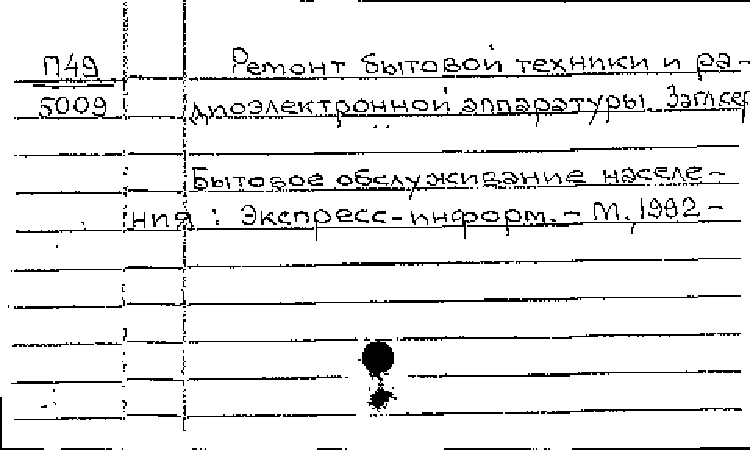 П49 Ремонт бытовой техники и ра-
5009 диоэлектронной аппаратуры. Загл. сер.
Бытовое обслуживание населе-
ния : Экспресс-информ. - М., 1992 -